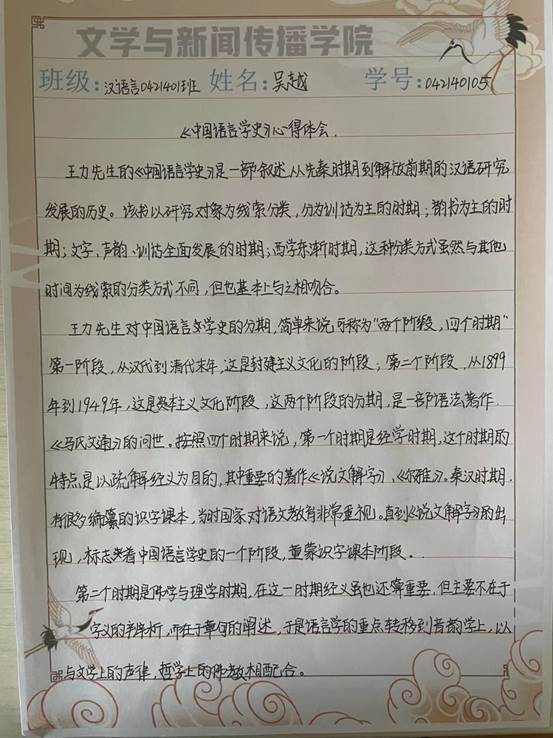 文学与新闻传播学院
班级:汉语言0421401班 姓名:吴越 学号:042140105
《中国语言学史》心得体会.
王力先生的《中国语言学史》是一部叙述从先秦时期到解放前期的汉语研究
发展的历史。该书以研究对象为线索分类,分为训诂为主的时期;韵书为主的时
期;文字、声韵、训诂全面发展的时期;西学东渐时期,这种分类方式虽然与其他
时间为线索的分类方式不同,但也基本上与之相吻合。
王力先生对中国语言文学史的分期,简单来说可称为“两个阶段,四个时期”
第一阶段,从汉代到清代末年,这是封建主义文化的阶段;第二个阶段,从1899
年到1949年,这是资本主义文化阶段,这两个阶段的分期,是一部语法著作
《马氏文通》的问世。按照四个时期来说,第一个时期是经学时期,这个时期的
特点是以疏解经义为目的,其中重要的著作《说文解字》、《尔雅》。秦汉时期,
有很多编纂的识字课本,当时国家对语文教育非常重视。直到《说文解字》的出
现,标志着中国语言学史的一个阶段,童蒙识字课本阶段。
第二个时期是佛学与理学时期,在这一时期经义虽也还算重要,但主要不在于
字义的辨析,而在于章句的阐述,于是语言学的重点转移到音韵学上,以
与文学上的声律,哲学上的佛教相配合。